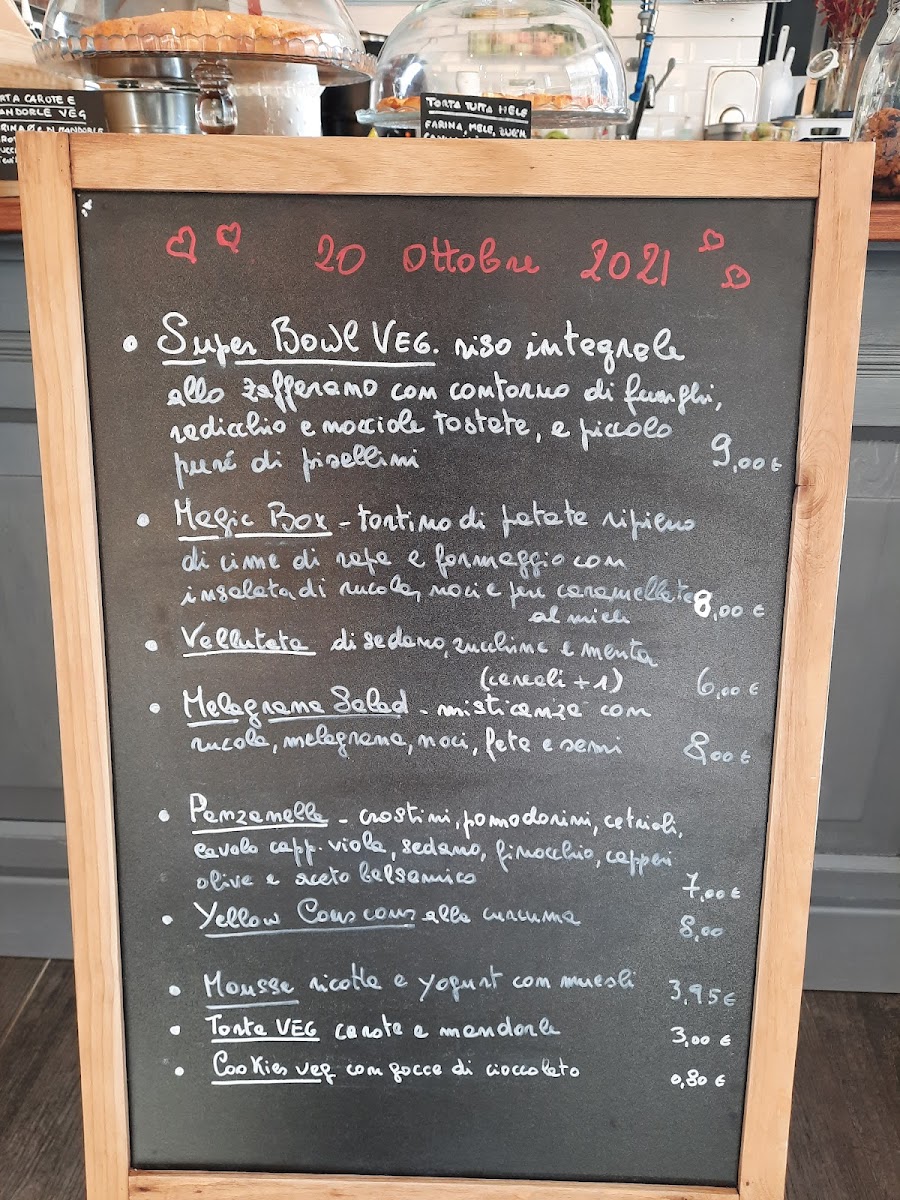 TORTA TUTTA MELE
FARINA, MELE, ZUCH
RTA CAROTE E
ANDORLE VEG
20 Ottobre 2021
• Super Bowl VEG. riso integrale
allo zafferano con contorno di funghi,
radicchio e nocciole tostate, e piccolo
puré di pisellini 9,00 €
• Magic Box - tortino di patate ripieno
di cime di rapa e formaggio con
insalata di rucola, noci e pere caramellate 8,00 €
al miele
• Vellutata di sedano, zucchine e menta
(cereali +1) 6,00 €
• Melagrana Salad - misticanza con
rucola, melagrana, noci, feta e semi 8,00 €
• Panzanella - crostini, pomodorini, cetrioli,
cavolo capp. viola, sedano, finocchio, capperi
olive e aceto balsamico 7,00 €
• Yellow Cous cous alla curcuma 8,00
• Mousse ricotta e yogurt con muesli 3,95 €
• Torta VEG carote e mandorle 3,00 €
• Cookies veg con gocce di cioccolato 0,80 €